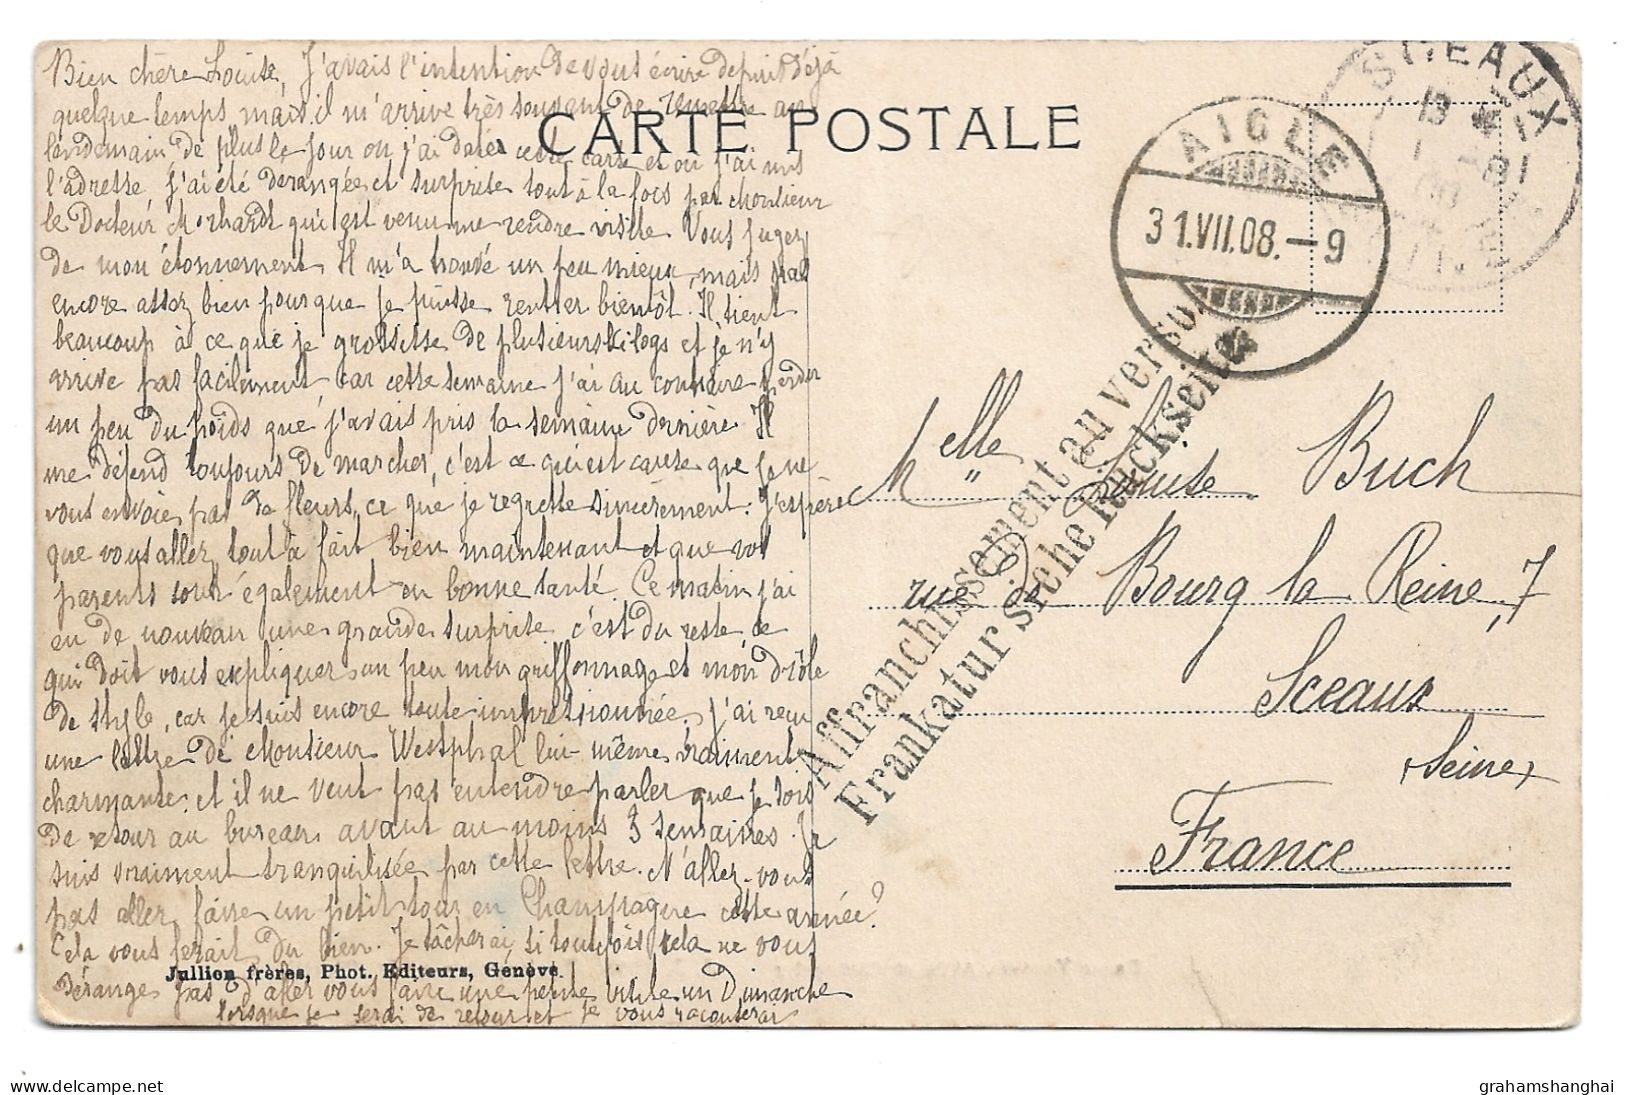 CARTE POSTALE
Bien chère Louise, J'avais l'intention de vous écrire depuis déjà
quelque temps mais il m'arrive très souvent de remettre au
lendemain, de plus le jour où j'ai daté cette carte et où j'ai mis
l'adresse, j'ai été dérangée et surprise tout à la fois par Monsieur
le Docteur Morhardt qui est venu me rendre visite. Vous jugez
de mon étonnement. Il m'a trouvé un peu mieux, mais pas
encore assez bien pour que je puisse rentrer bientôt. Il tient
beaucoup à ce que je grossisse de plusieurs kilogs et je n'y
arrive pas facilement, car cette semaine j'ai au contraire perdu
un peu du poids que j'avais pris la semaine dernière. Il
me défend toujours de marcher, c'est ce qui est cause que je ne
vous envoie pas de fleurs, ce que je regrette sincèrement. J'espère
que vous allez tout à fait bien maintenant et que vos
parents sont également en bonne santé. Ce matin j'ai
eu de nouveau une grande surprise, c'est du reste ce
qui doit vous expliquer un peu mon griffonnage et mon drôle
de style, car je suis encore toute impressionnée. J'ai reçu
une lettre de Monsieur Westphal lui-même vraiment
charmante. et il ne veut pas entendre parler que je sois
de retour au bureau avant au moins 3 semaines. Je
suis vraiment tranquilisée par cette lettre. N'allez-vous
pas aller faire un petit tour en Champagne cette année?
Cela vous ferait du bien. Je tâcherai, si toutefois cela ne vous
dérange pas d'aller vous faire une petite visite un Dimanche
lorsque je serai de retour et je vous raconterai
Jullien frères, Phot. Editeurs, Genève.
AIGLE
31.VII.08.-9
SCEAUX
Affranchissement au verso.
Frankatur siehe Rückseite.
Melle Louise Buch
rue de Bourg la Reine, 7
Sceaux
Seine
France
grahamshanghai